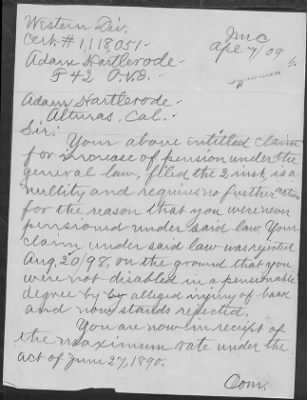 Western Div.
JMC
Cert. # 1,118,051.
Apl 7/09
Adam Hartlerode.
F 42 O.V.I.
Adam Hartlerode.
Alturas, Cal.
Sir:
Your above entitled claim
for increase of pension under the
general law, filed the 2 inst, is a
nullity and requires no further action
for the reason that you were never
pensioned under said law. Your
claim under said law was rejected
Aug. 20/98, on the ground that you
were not disabled in a pensionable
degree by by alleged injury of back
and now stands rejected.
You are now in receipt of
the maximum rate under the
act of June 27, 1890.
Com.